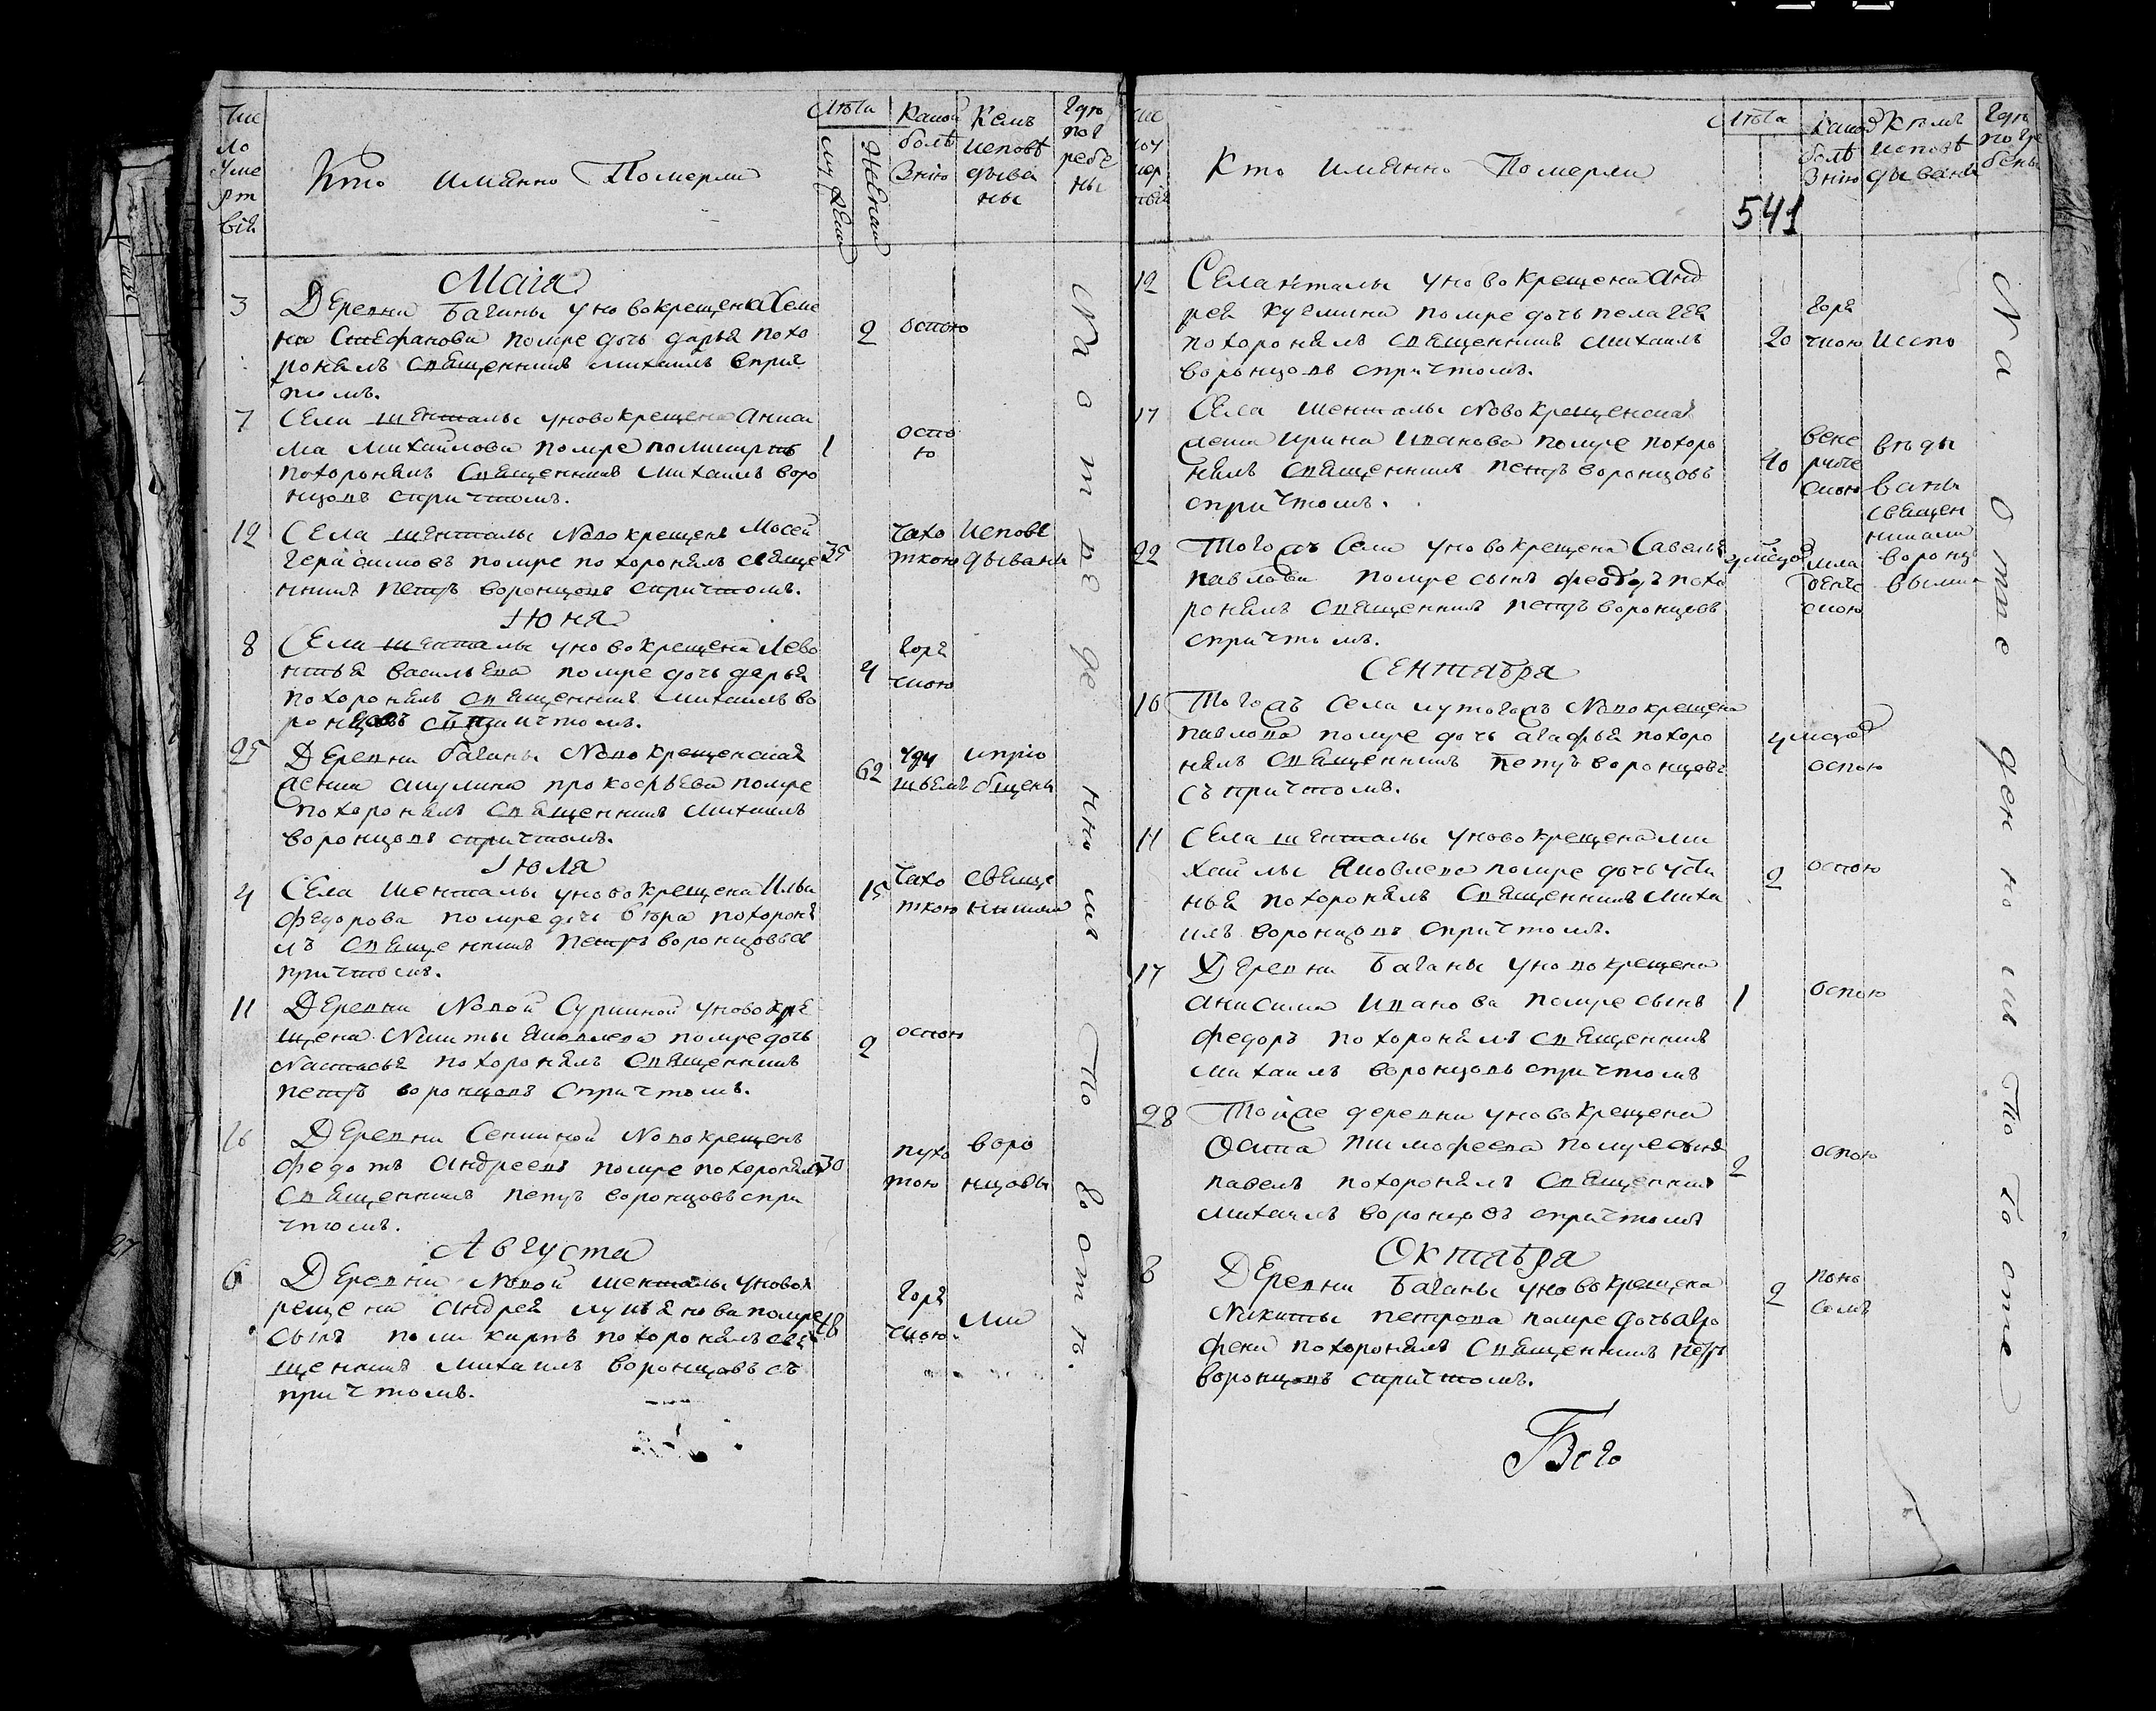 Чис
ло
Уме
рт
вій
Кто имянно Померли
Лѣта
Му
жеска
Женска
Какой
болѣ
знію
Кемъ
исповѣ
дыва
ны
Гдѣ
пог
ребе
ны
Маія
3 Деревни Баганы уновокрещена Семе
на Стефанова помре дочь дарья похо
ронилъ Священникъ михаилъ сприч
томъ.
2 оспою
7 Села шенталы уновокрещена
ма Михайлова помре
похоронилъ Священникъ Михаилъ воро
нцовъ спричтомъ.
1 оспо
ю
12 Села шенталы Новокрещенъ Мосей
герасимовъ помре похоронилъ свяще
нникъ петръ воронцовъ спричтомъ.
35 чахо
ткою
исповѣ
дываны
Июня
8 Села шенталы уновокрещена Лево
нтья васильева помре дочь дарья
похоронилъ священникъ михаилъ во
ронцовъ съ причтомъ.
4 горя
чкою
25 Деревни баганы Новокрещенская
женка акулина прокофьева помре
похоронилъ священникъ михаилъ
воронцовъ спричтомъ.
62 уду
шьемъ
ипріо
бщены
Июля
4 Села шенталы уновокрещена Ильи
федорова помре дочь вѣра похорони
лъ священникъ петръ воронцовъ съ
причтомъ.
15 чахо
ткою
свяще
никами
11 Деревни Новой Суркиной уновокре
щена Никиты Яковлева помре дочь
Настасья похоронилъ Священникъ
петръ воронцовъ спричтомъ.
2 оспою
26 Деревни Сенкиной Новокрещенъ
федотъ андреевъ помре похоронилъ
священникъ петръ воронцовъ спри
чтомъ.
30 пухо
тою
воро
нцовы
Августа
6 Деревни Новой шенталы уновок
рещена андрея лукьянова помре
сынъ поликарпъ похоронилъ свя
щенникъ михаилъ воронцовъ съ
причтомъ.
18 горя
чкою
ми
На отведенномъ то во отъ.
Кто имянно Померли
Лѣта
541
Какой
болѣ
знію
Кѣмъ
исповѣ
дываны
Гдѣ
погре
бены
12 Села шенталы уновокрещена анд
рея кузмина помре дочь пелагея
похоронилъ священникъ михаилъ
воронцовъ спричтомъ.
20 горя
чкою
испо
17 Села шенталы Новокрещенская
женка ирина иванова помре похоро
нилъ священникъ петръ воронцовъ
спричтомъ.
40 вене
риче
скою
вѣды
ваны
священ
никами
воронц
выми
22 Тогожъ Села уновокрещена Савелья
павлова помре сынъ федоръ похо
ронилъ священникъ петръ воронцовъ
спричтомъ.
мла
денче
скою
Сентября
10 Тогожъ села у тогожъ Новокрещена
павлова помре дочь агафья похоро
нилъ священникъ петръ воронцовъ
съ причтомъ.
оспою
11 Села шенталы уновокрещена ми
хайлы Яковлева помре дочь усти
нья похоронилъ Священникъ Миха
илъ воронцовъ спричтомъ.
2 оспою
17 Деревни Баганы уновокрещена
анисима иванова помре сынъ
федоръ похоронилъ священникъ
михаилъ воронцовъ спричтомъ
1 оспою
28 Тойже деревни уновокрещена
Осипа тимофеева помре сынъ
павелъ похоронилъ Священникъ
михаилъ воронцовъ спричтомъ
2 оспою
Октября
8 Деревни Баганы уновокрещена
Никиты петрова помре дочь агро
фена похоронилъ Священникъ петръ
воронцовъ спричтомъ.
2 поно
сомъ
Всго
На отведенномъ то во отве